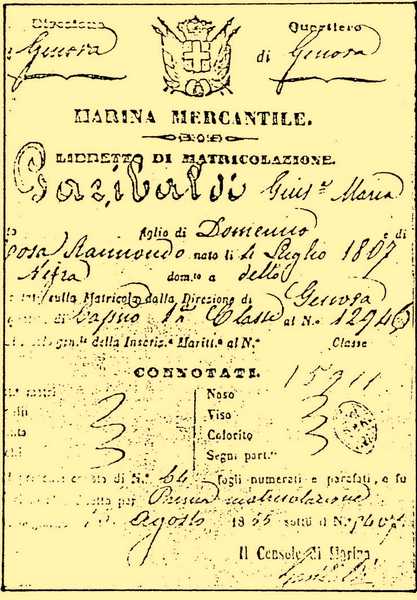 Direzione Quartiero
Genova di Genova
MARINA MERCANTILE.
LIBRETTO DI MATRICOLAZIONE.
Garibaldi Gius.e Maria
figlio di Domenico e di
Rosa Raimondo nato li 4 Luglio 1807
Nizza dom.to a detto
sulla Matricola dalla Direzione di Genova
di Capno 1a Classe al N.o 12946
della Inscriz. Maritt.a al N.o Classe
CONNOTATI. 15911
Naso
Viso
Colorito
Segni part.i
di N.o 64 fogli numerati e parafati, e fu
per Prima matricolazione
Agosto 1855 sotto il N.
Il Console di Marina